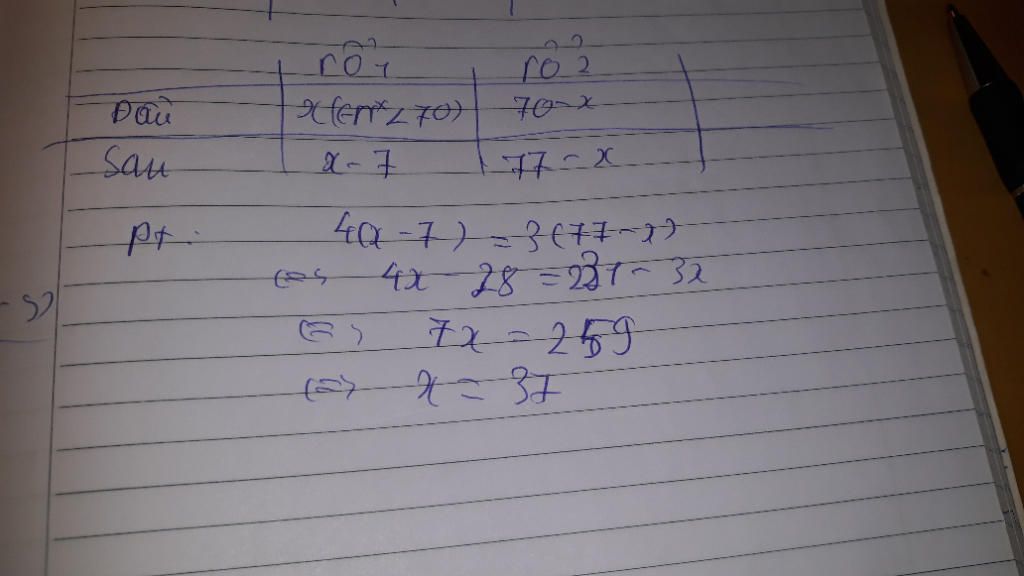 rổ 1 rổ 2
Đầu x(∈N* < 70) 70 - x
Sau x - 7 77 - x
Pt : 4(x - 7) = 3(77 - x)
(=) 4x - 28 = 231 - 3x
(=) 7x = 259
(=) x = 37